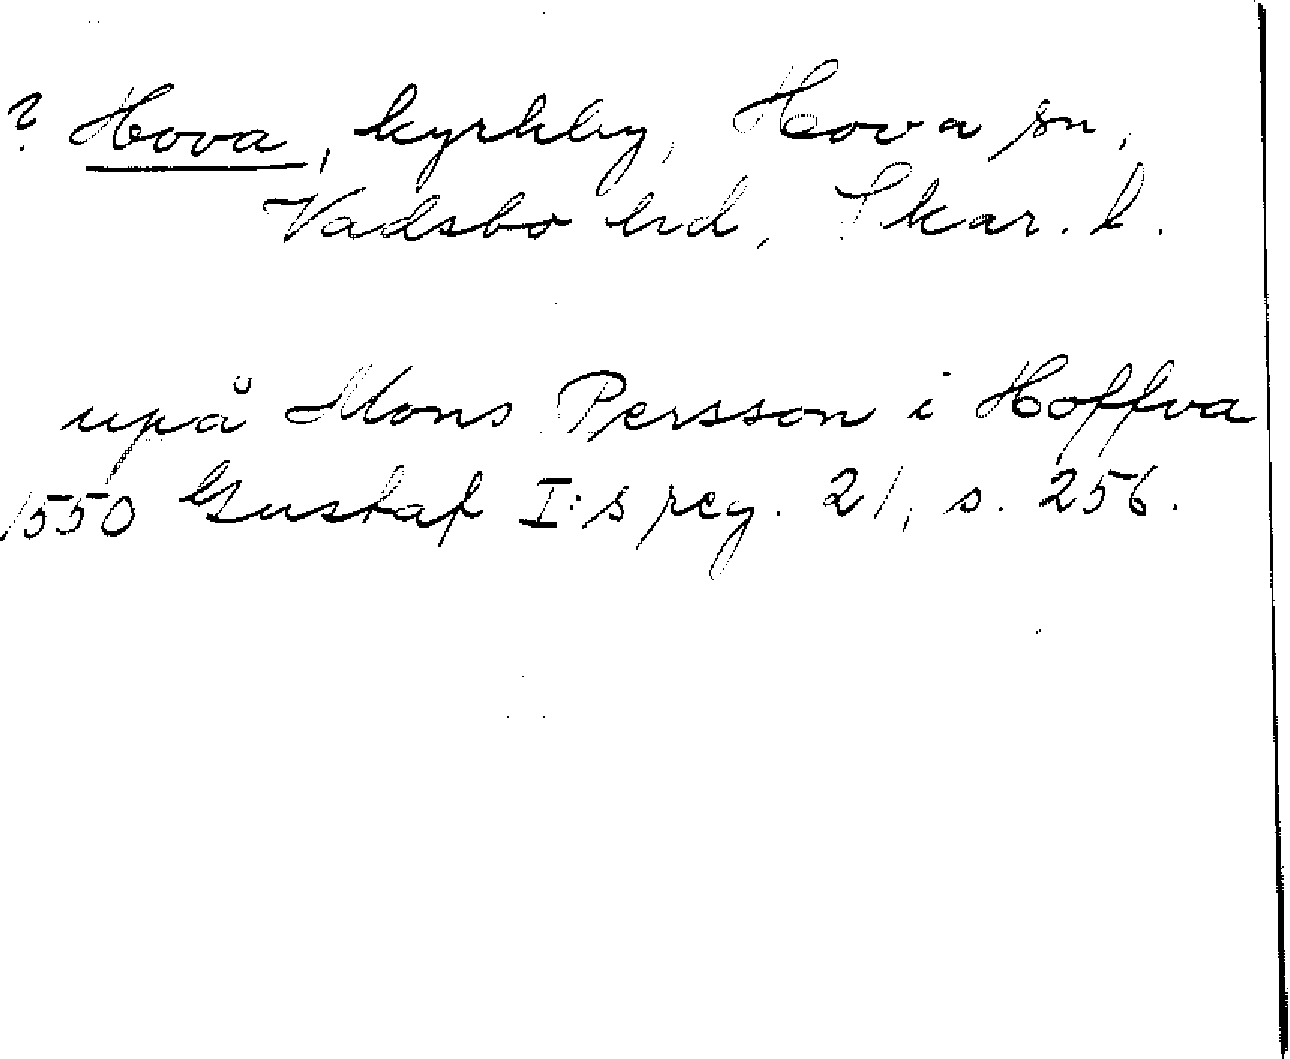 ? Hova, kyrkby, Hova sn,
Vadsbo hd, Skar. l.
upå Mons Persson i Hoffva
1550 Gustaf I:s reg. 21, s. 256.